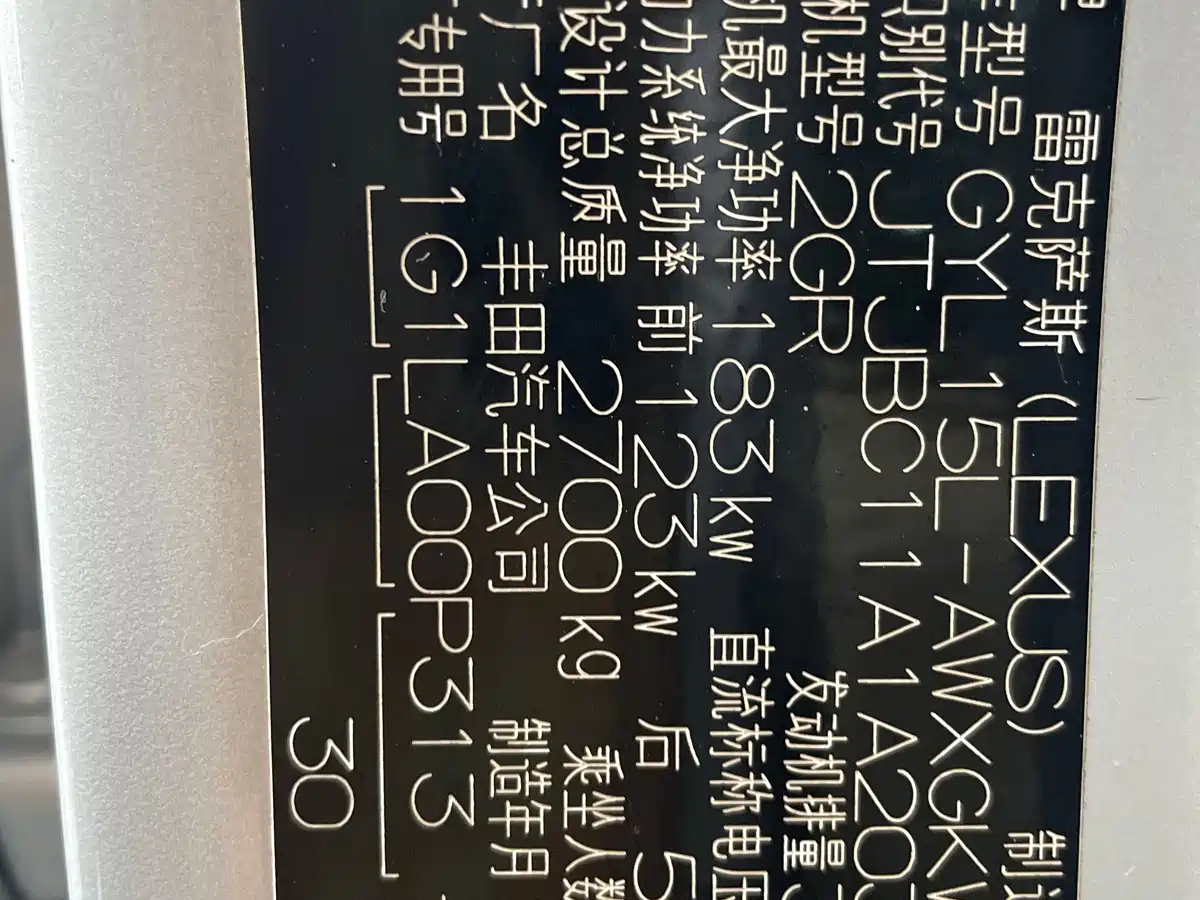 雷克萨斯(LEXUS) 制
型号 GYL15L-AWXGK
别代号 JTJBC11A1A20
机型号 2GR 发动机排量
机最大净功率 183kw 直流标称电压
力系统净功率 前 123kw 后 5
设计总质量 2700kg 乘坐人数
厂名 丰田汽车公司 制造年月
专用号 1G1LA00P313
30